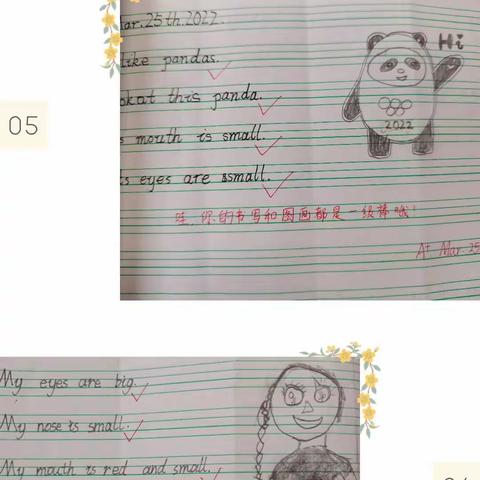 Mar. 25th. 2022
Hi
like pandas.
05
at this panda.
mouth is small.
2022
eyes are ssmall.
哇,你的书写和图画都是一级棒哦!
A+ Mar. 25
My eyes are big.
My nose is small.
My mouth is red and small.